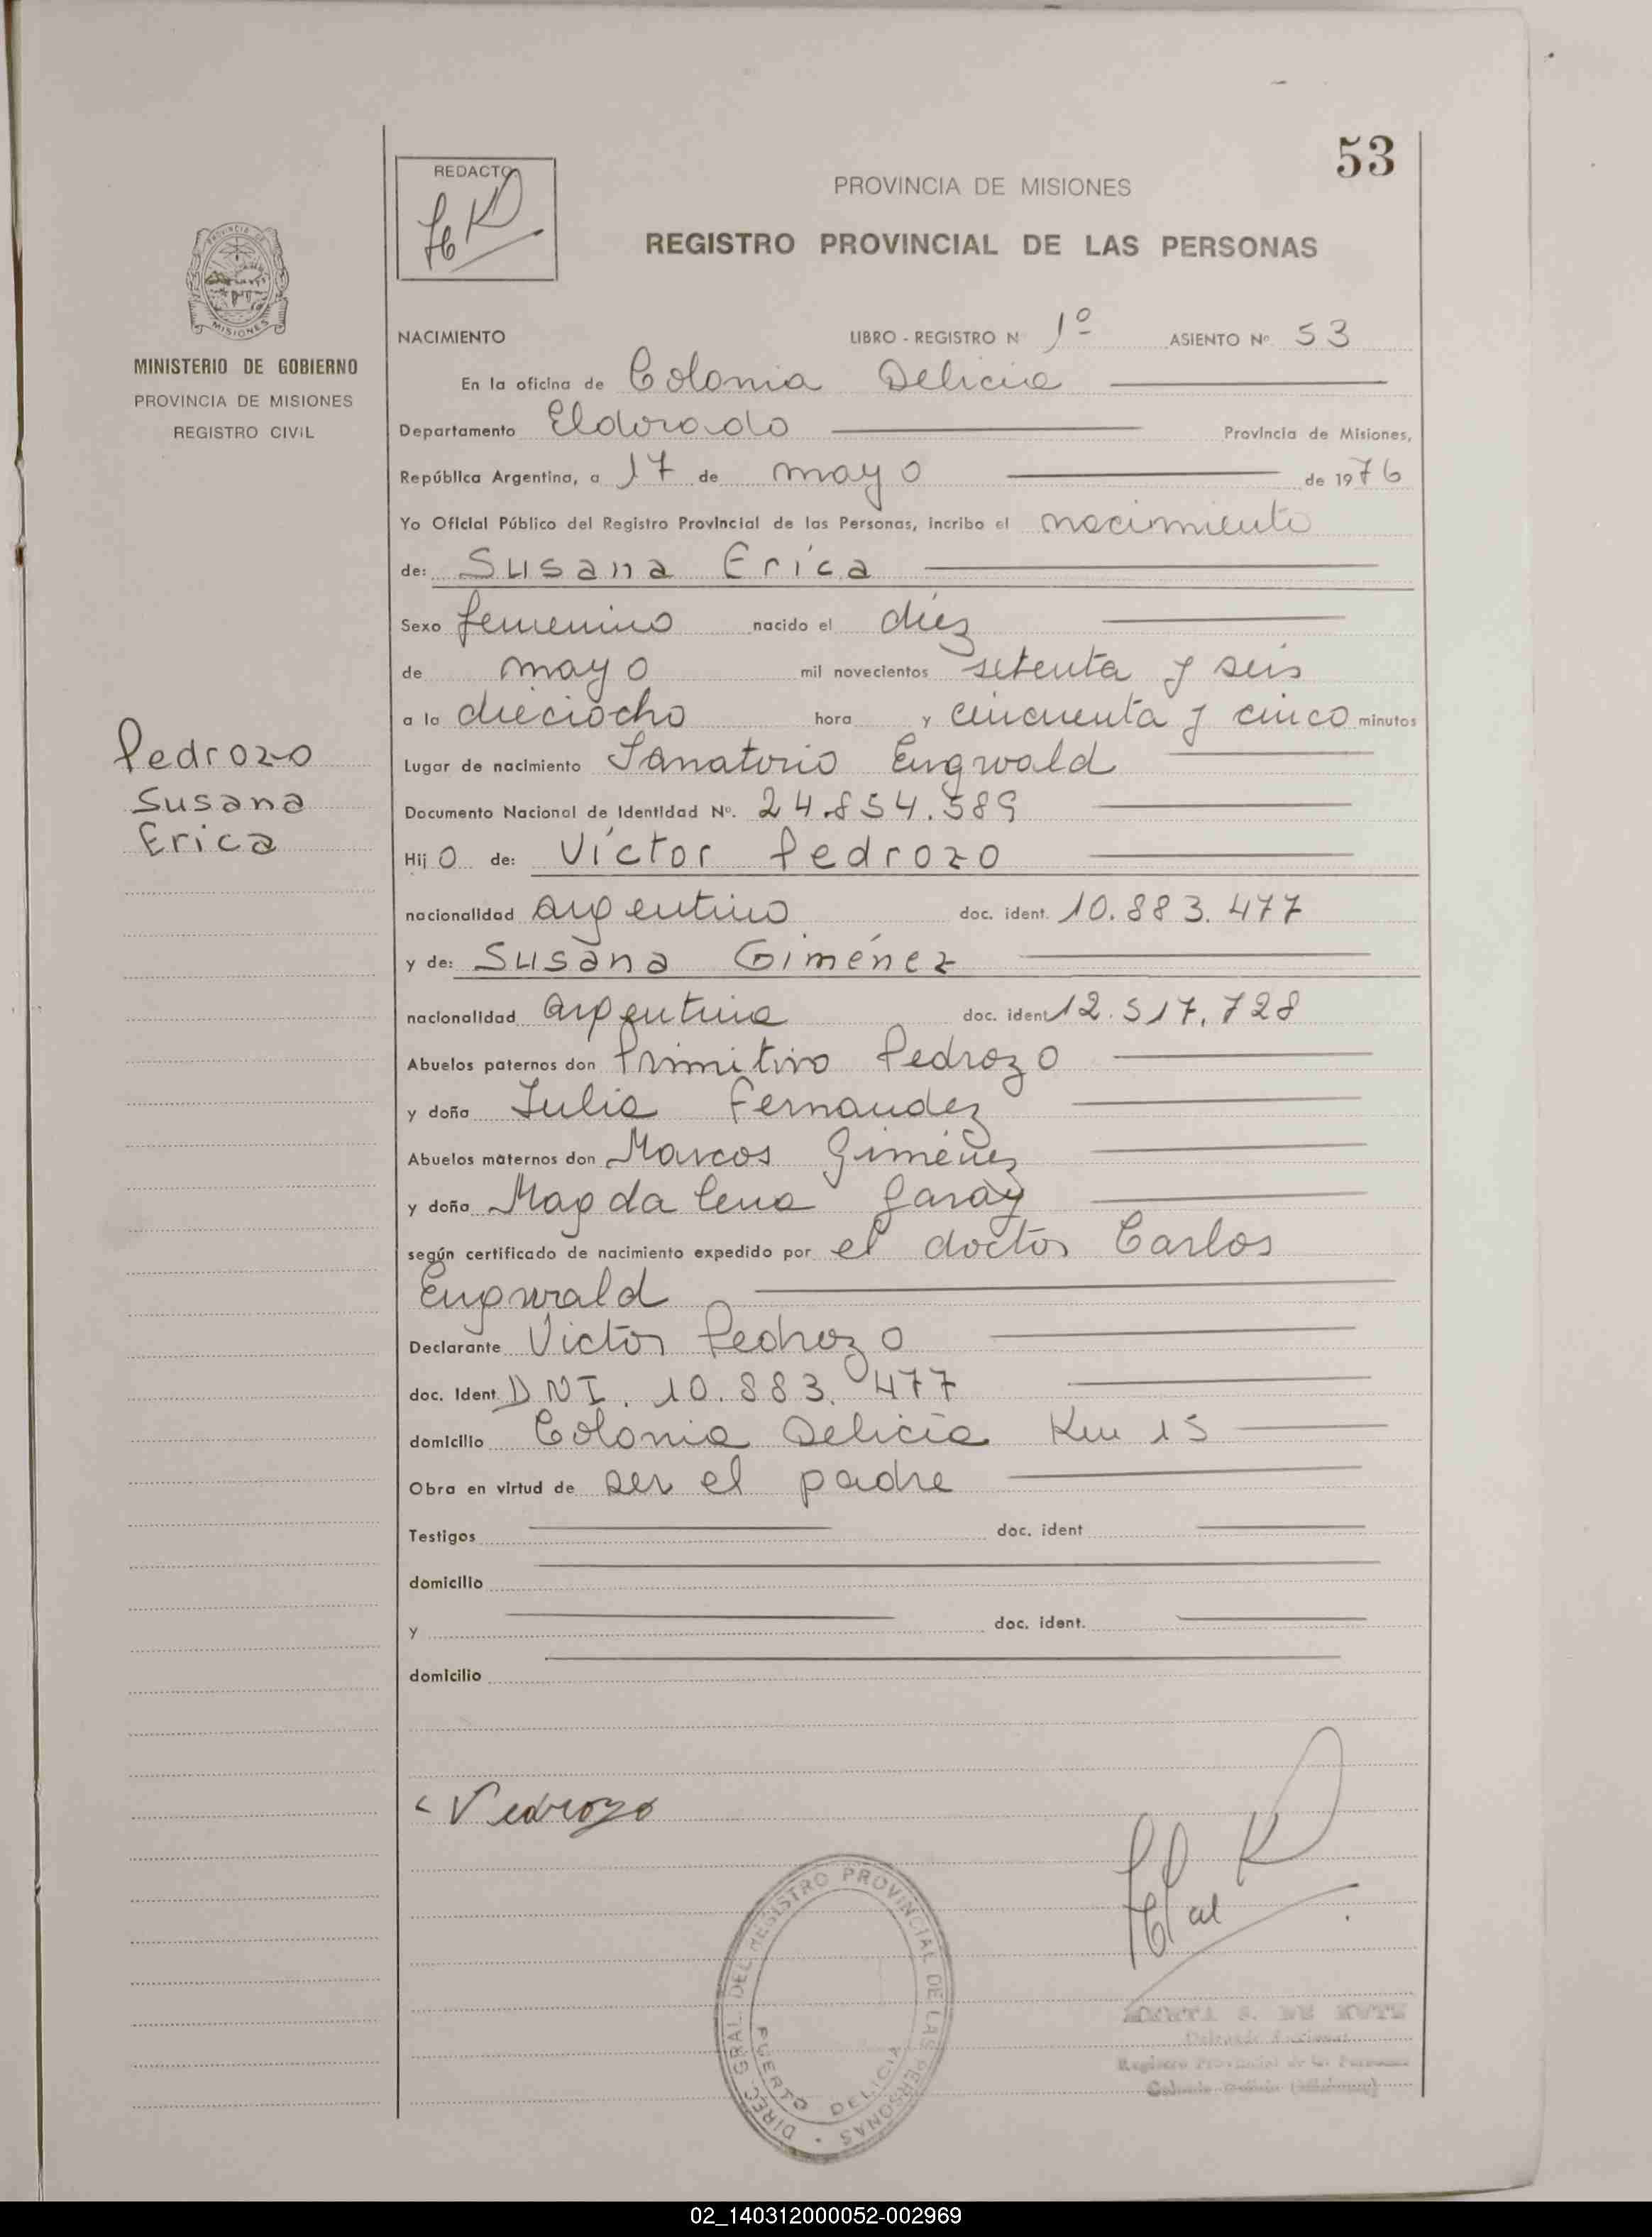 53
REDACTO
PROVINCIA DE MISIONES
REGISTRO PROVINCIAL DE LAS PERSONAS
PROVINCIA DE
MISIONES
MINISTERIO DE GOBIERNO
PROVINCIA DE MISIONES
REGISTRO CIVIL
NACIMIENTO LIBRO - REGISTRO N 1º ASIENTO Nº 53
En la oficina de Colonia Delicia
Departamento Eldorado Provincia de Misiones,
República Argentina, a 17 de mayo de 1976
Yo Oficial Público del Registro Provincial de las Personas, incribo el nacimiento
de: Susana Erica
Sexo femenino nacido el diez
de mayo mil novecientos setenta y seis
a la dieciocho hora y cincuenta y cinco minutos
Pedrozo
Susana
Erica
Lugar de nacimiento Sanatorio Engwald
Documento Nacional de Identidad Nº. 24.854.589
Hij O de: Víctor Pedrozo
nacionalidad argentino doc. ident. 10.883.477
y de: Susana Giménez
nacionalidad argentina doc. ident 12.517.728
Abuelos paternos don Primitivo Pedrozo
y doña Julia Fernandez
Abuelos maternos don Marcos Giménez
y doña Magdalena Garay
según certificado de nacimiento expedido por el doctor Carlos
Engwald
Declarante Victor Pedrozo
doc. Ident. DNI. 10.883.477
domicilio Colonia Delicia Km 15
Obra en virtud de ser el padre
Testigos doc. ident
domicilio
y doc. ident.
domicilio
Pedrozo
DIREC. GRAL. DEL REGISTRO PROVINCIAL DE LAS PERSONAS
PUERTO DELICIA
S. DE
Registro Provincial de las Personas
Colonia Delicia (Misiones)
02_140312000052-002969